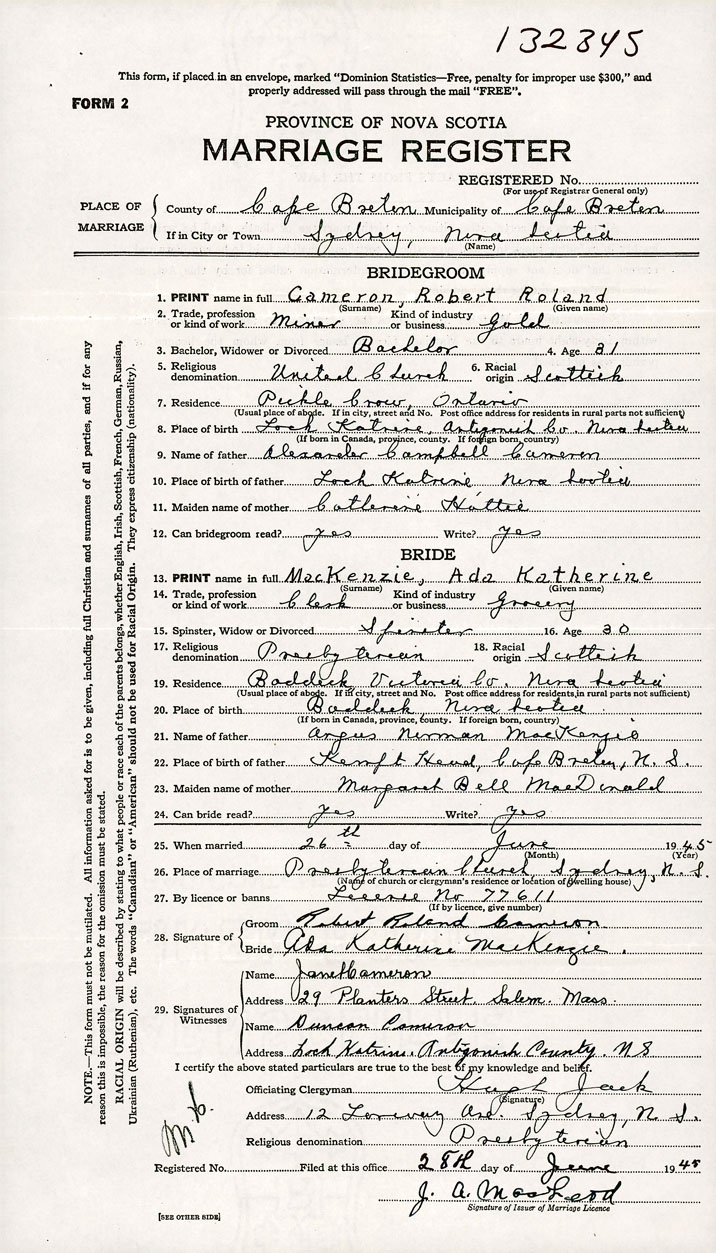 132345
This form, if placed in an envelope, marked "Dominion Statistics—Free, penalty for improper use $300," and
properly addressed will pass through the mail "FREE".
FORM 2
PROVINCE OF NOVA SCOTIA
MARRIAGE REGISTER
REGISTERED No.
(For use of Registrar General only)
PLACE OF MARRIAGE
County of Cape Breton Municipality of Cape Breton
If in City or Town Sydney, Nova Scotia
(Name)
BRIDEGROOM
1. PRINT name in full Cameron, Robert Roland
(Surname) (Given name)
2. Trade, profession or kind of work Miner Kind of industry or business Gold
3. Bachelor, Widower or Divorced Bachelor 4. Age 31
5. Religious denomination United Church 6. Racial origin Scottish
7. Residence Pickle Crow, Ontario
(Usual place of abode. If in city, street and No. Post office address for residents in rural parts not sufficient)
8. Place of birth Loch Katrine, Antigonish Co. Nova Scotia
(If born in Canada, province, county. If foreign born, country)
9. Name of father Alexander Campbell Cameron
10. Place of birth of father Loch Katrine Nova Scotia
11. Maiden name of mother Catherine Hattie
12. Can bridegroom read? yes Write? yes
BRIDE
13. PRINT name in full MacKenzie, Ada Katherine
(Surname) (Given name)
14. Trade, profession or kind of work Clerk Kind of industry or business Grocery
15. Spinster, Widow or Divorced Spinster 16. Age 30
17. Religious denomination Presbyterian 18. Racial origin Scottish
19. Residence Baddeck Victoria Co. Nova Scotia
(Usual place of abode. If in city, street and No. Post office address for residents in rural parts not sufficient)
20. Place of birth Baddeck, Nova Scotia
(If born in Canada, province, county. If foreign born, country)
21. Name of father Angus Norman MacKenzie
22. Place of birth of father Kempt Head, Cape Breton, N. S.
23. Maiden name of mother Margaret Bell MacDonald
24. Can bride read? yes Write? yes
25. When married 26th day of June 1945
(Month) (Year)
26. Place of marriage Presbyterian Church, Sydney, N. S.
(Name of church or clergyman's residence or location of dwelling house)
27. By licence or banns Licence No 77611
(If by licence, give number)
28. Signature of
Groom Robert Roland Cameron
Bride Ada Katherine MacKenzie.
29. Signatures of Witnesses
Name Janet Cameron
Address 29 Planters Street. Salem. Mass.
Name Duncan Cameron
Address Loch Katrine. Antigonish County. N S
I certify the above stated particulars are true to the best of my knowledge and belief.
Officiating Clergyman Hugh Jack
(Signature)
Address 12 Lorway Ave. Sydney, N. S.
Religious denomination Presbyterian
Registered No. Filed at this office 28th day of June 1945
J. A. MacLeod
Signature of Issuer of Marriage Licence
[SEE OTHER SIDE]
NOTE.—This form must not be mutilated. All information asked for is to be given, including full Christian and surnames of all parties, and if for any
reason this is impossible, the reason for the omission must be stated.
RACIAL ORIGIN will be described by stating to what people or race each of the parents belongs, whether English, Irish, Scottish, French, German, Russian,
Ukrainian (Ruthenian), etc. The words "Canadian" or "American" should not be used for Racial Origin. They express citizenship (nationality).